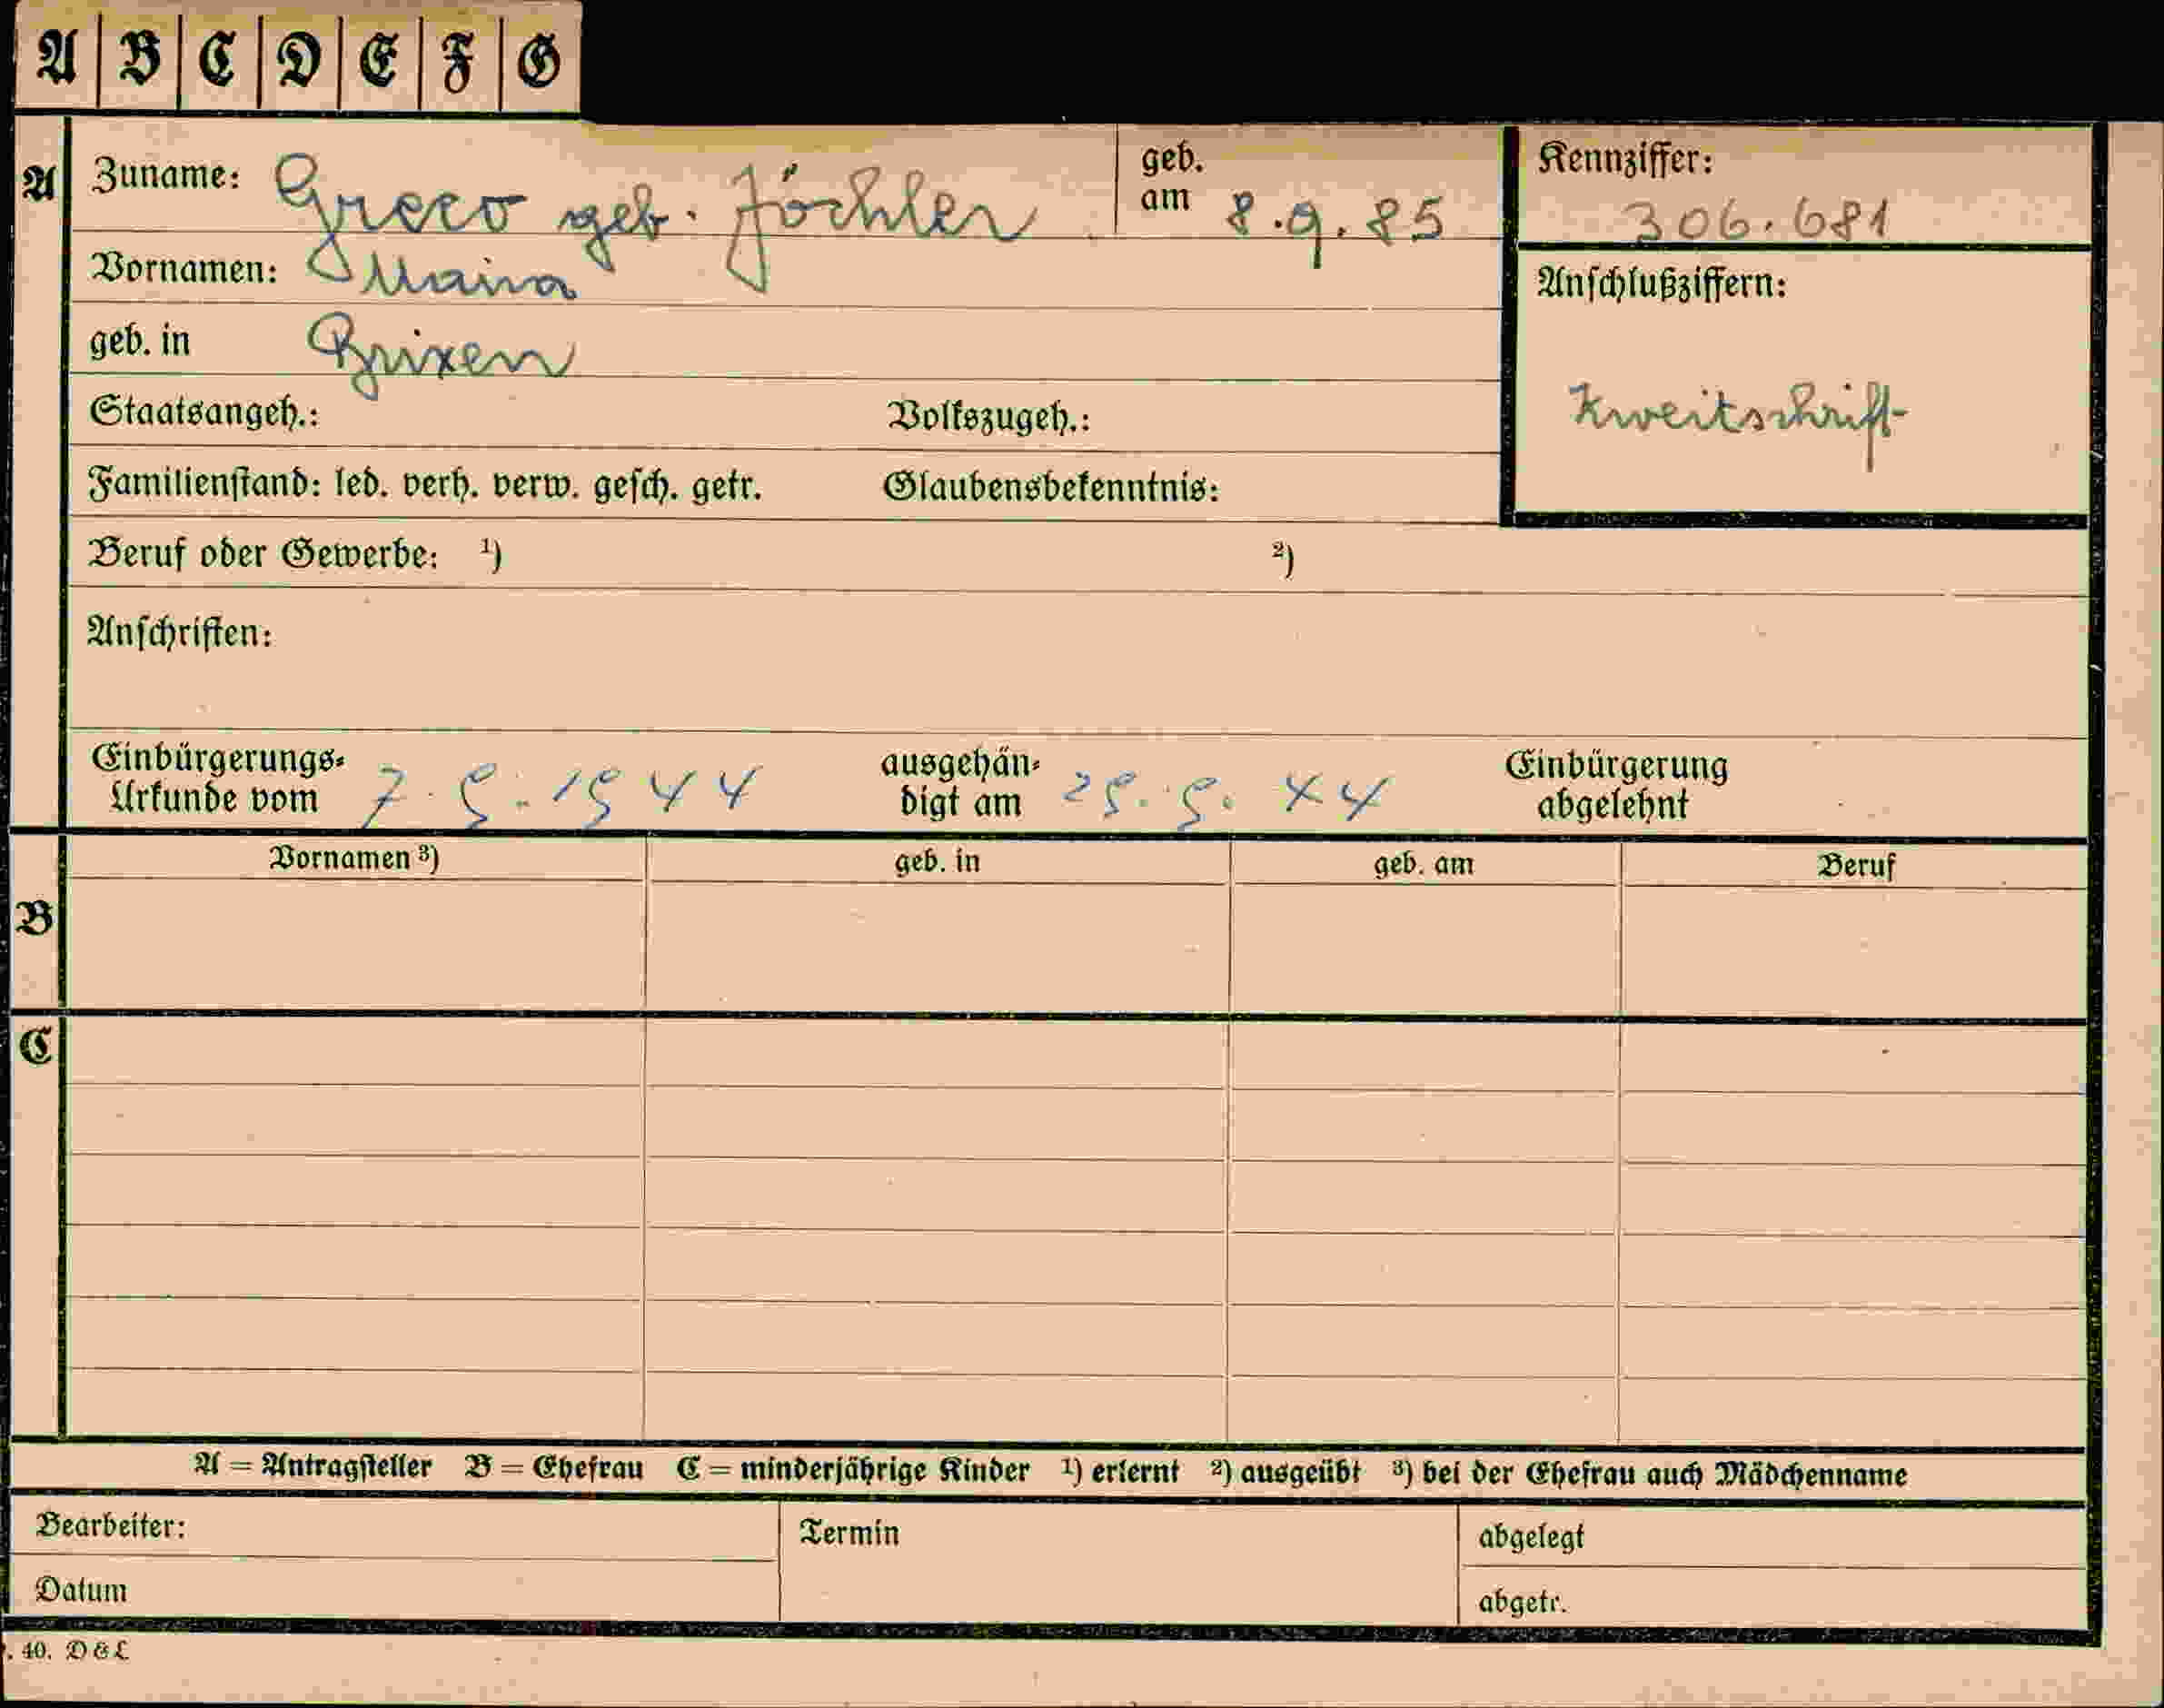 A B C D E F G
A Zuname: Greco geb. Jöchler geb. am 8.9.85 Kennziffer: 306.681
Vornamen: Maria Anschlußziffern:
geb. in Brixen
Zweitschrift
Staatsangeh.: Volkszugeh.:
Familienstand: led. verh. verw. gesch. getr. Glaubensbekenntnis:
Beruf oder Gewerbe: 1) 2)
Anschriften:
Einbürgerungs- ausgehän- Einbürgerung
Urkunde vom 7.9.1944 digt am 29.9.44 abgelehnt
Vornamen 3) geb. in geb. am Beruf
B
C
A = Antragsteller B = Ehefrau C = minderjährige Kinder 1) erlernt 2) ausgeübt 3) bei der Ehefrau auch Mädchenname
Bearbeiter: Termin abgelegt
Datum abgetr.
. 40. D & L